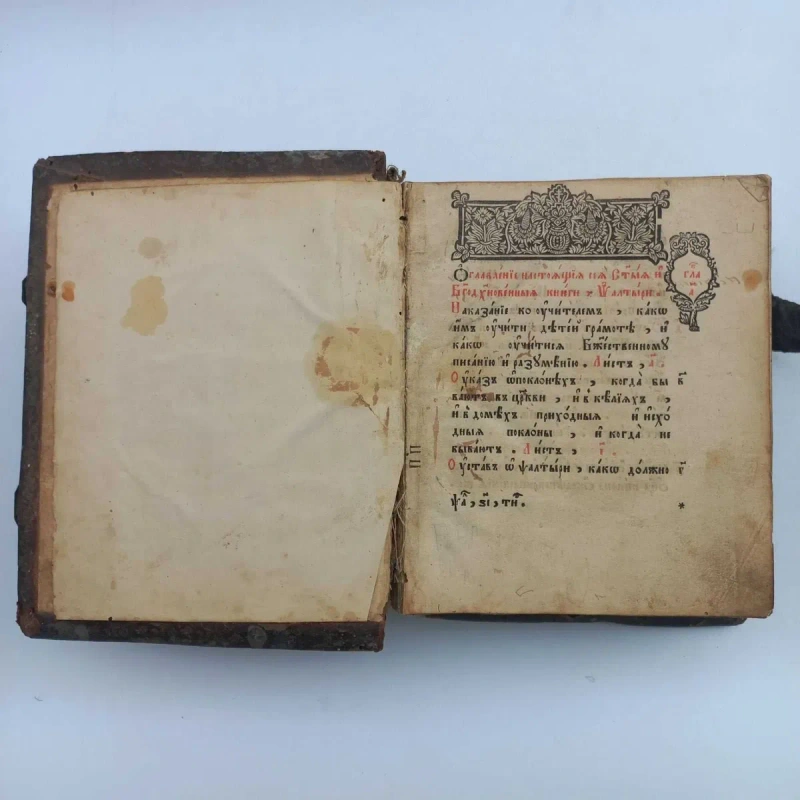 Ѻглавле́нїе настоѧ́щїѧ сеѧ̀ ст҃ы́ѧ и҆
Бг҃одꙋхнове́нныѧ кни́ги, Ѱалты́ри.
гла
а҃
Наказа́нїе ко ᲂу҆чи́телемъ, ка́кѡ
и҆̀мъ ᲂу҆чи́ти дѣте́й гра́мотѣ, и҆
ка́кѡ ᲂу҆чи́тисѧ Бж҃е́ственномꙋ
писа́нїю и҆ разꙋмѣ́нїю. Ли́стъ, а҃
Оу҆ка́зъ ѡ҆ покло́нѣхъ, когда̀ бы
ва́ютъ въ цр҃кви, и҆ в̾ ке́лїѧхъ,
и҆ в̾ домѣ́хъ прихо́дныѧ и҆ и҆схо́
дныѧ покло́ны, и҆ когда̀ не
быва́ютъ. Ли́стъ, і҃.
Оу҆ста́въ ѡ҆ ѱалты́ри, ка́кѡ до́лжно